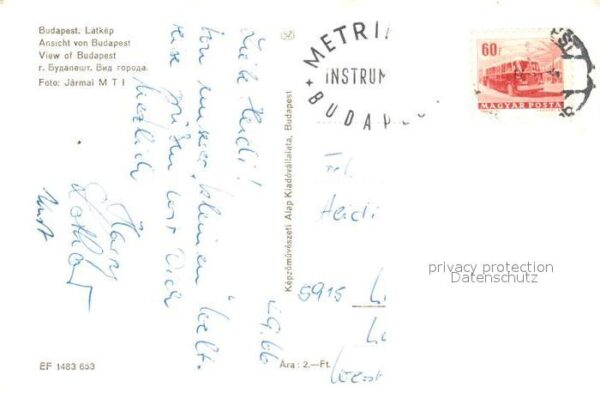 Budapest. Látkép
Ansicht von Budapest
View of Budapest
г. Будапешт. Вид города.
Foto: Jármai M T I
Liebe Heidi!
Von unserer kleinen Welt-
reise grüßen wir Dich
herzlich
Harry
Lothar
Képzőművészeti Alap Kiadóvállalata, Budapest
METRI
INSTRUM
BUDAPE
60f
MAGYAR POSTA
Frl.
Heidi
5915
privacy protection
Datenschutz
EF 1483 653
Ára : 2.—Ft.